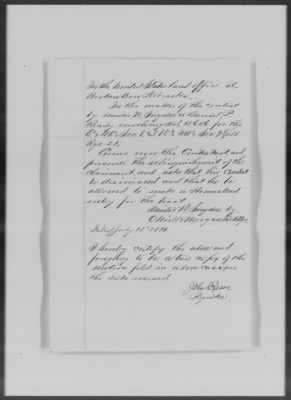 In the United States land office at
Broken Bow Nebraska.
In the matter of the contest
by W. Snyder vs Daniel P.
involving for the
Comes now the Contestant and
presents the relinquishment of the
claimant, and asks that his Contest
be dismissed and that he be
allowed to make a Homestead
entry for the tract
W. Snyder by
Filed July 15" 1890.
I hereby certify the above and
foregoing to be a true copy of the
motion filed in above case on
the date named.
John Reese
Register.